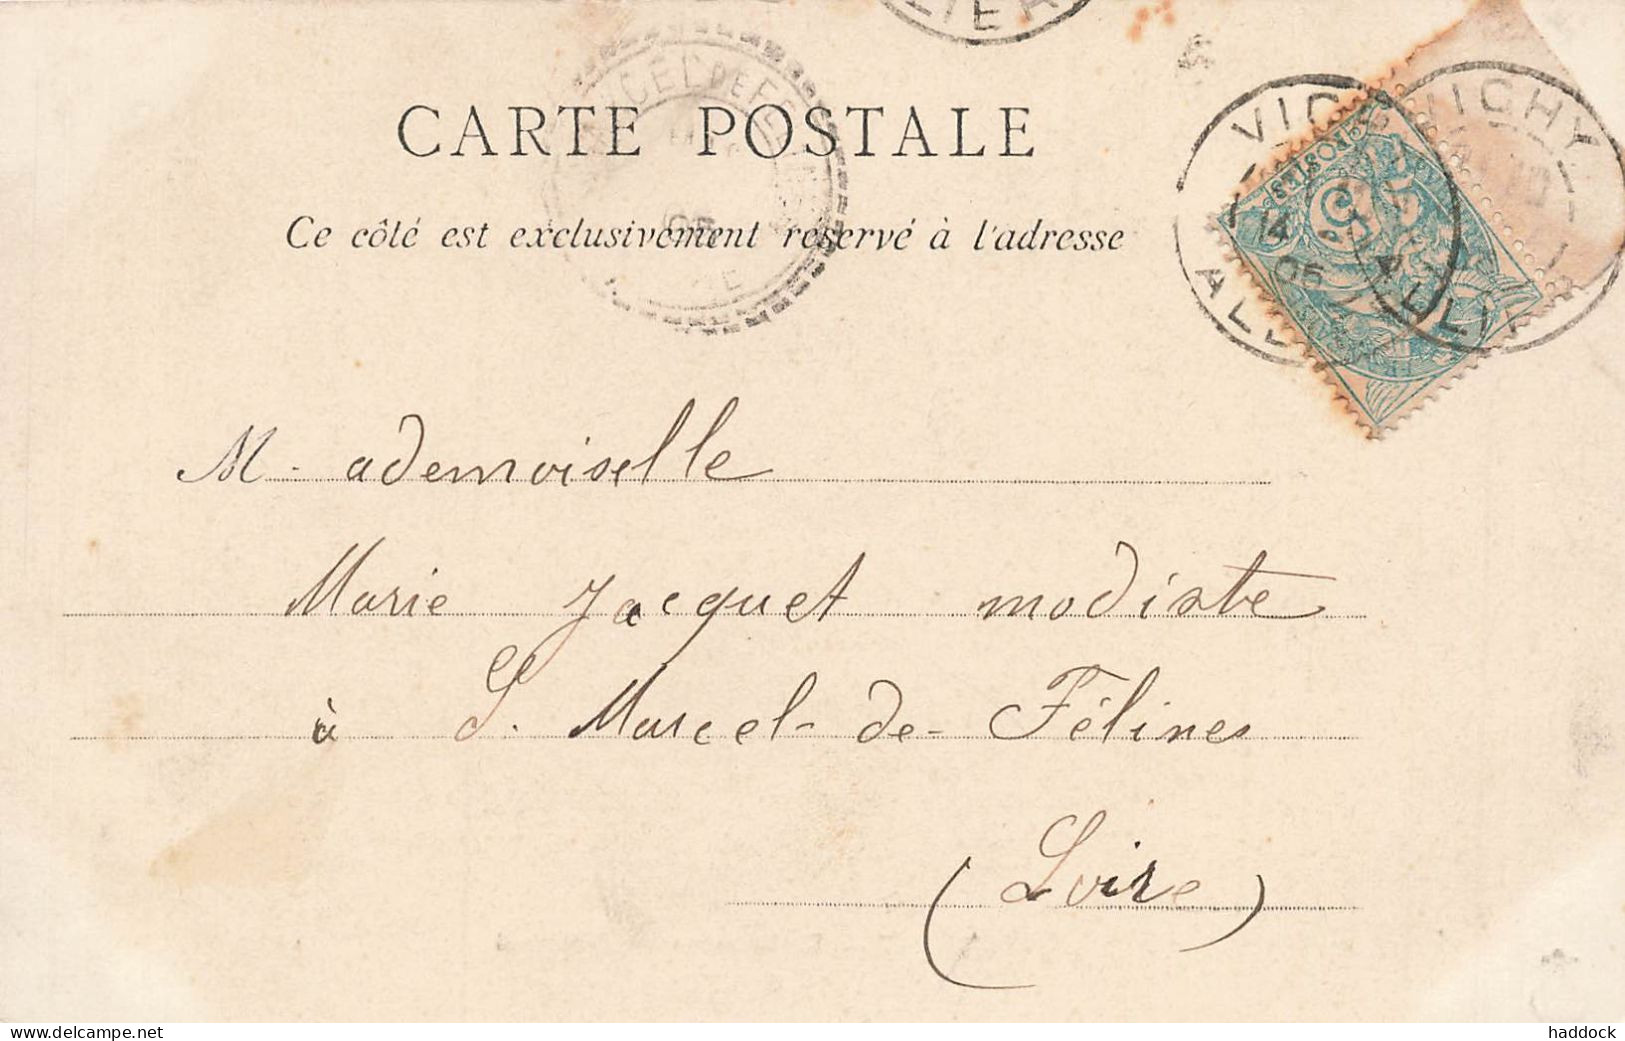 LIER
CARTE POSTALE
Ce côté est exclusivement réservé à l'adresse
VICHY
VICHY
14
05
ALLIER
POSTES
5
05
M. ademoiselle
Marie Jacquet modiste
à St. Marcel-de-Félines
(Loire)
delcampe.net
haddock